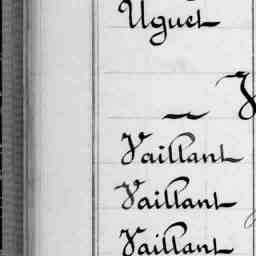 Uguet
V
Vaillant
Vaillant
Vaillant